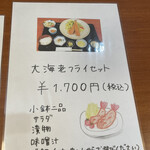 大海老フライセット
￥1,700円(税込)
小鉢二品
サラダ
漬物
味噌汁